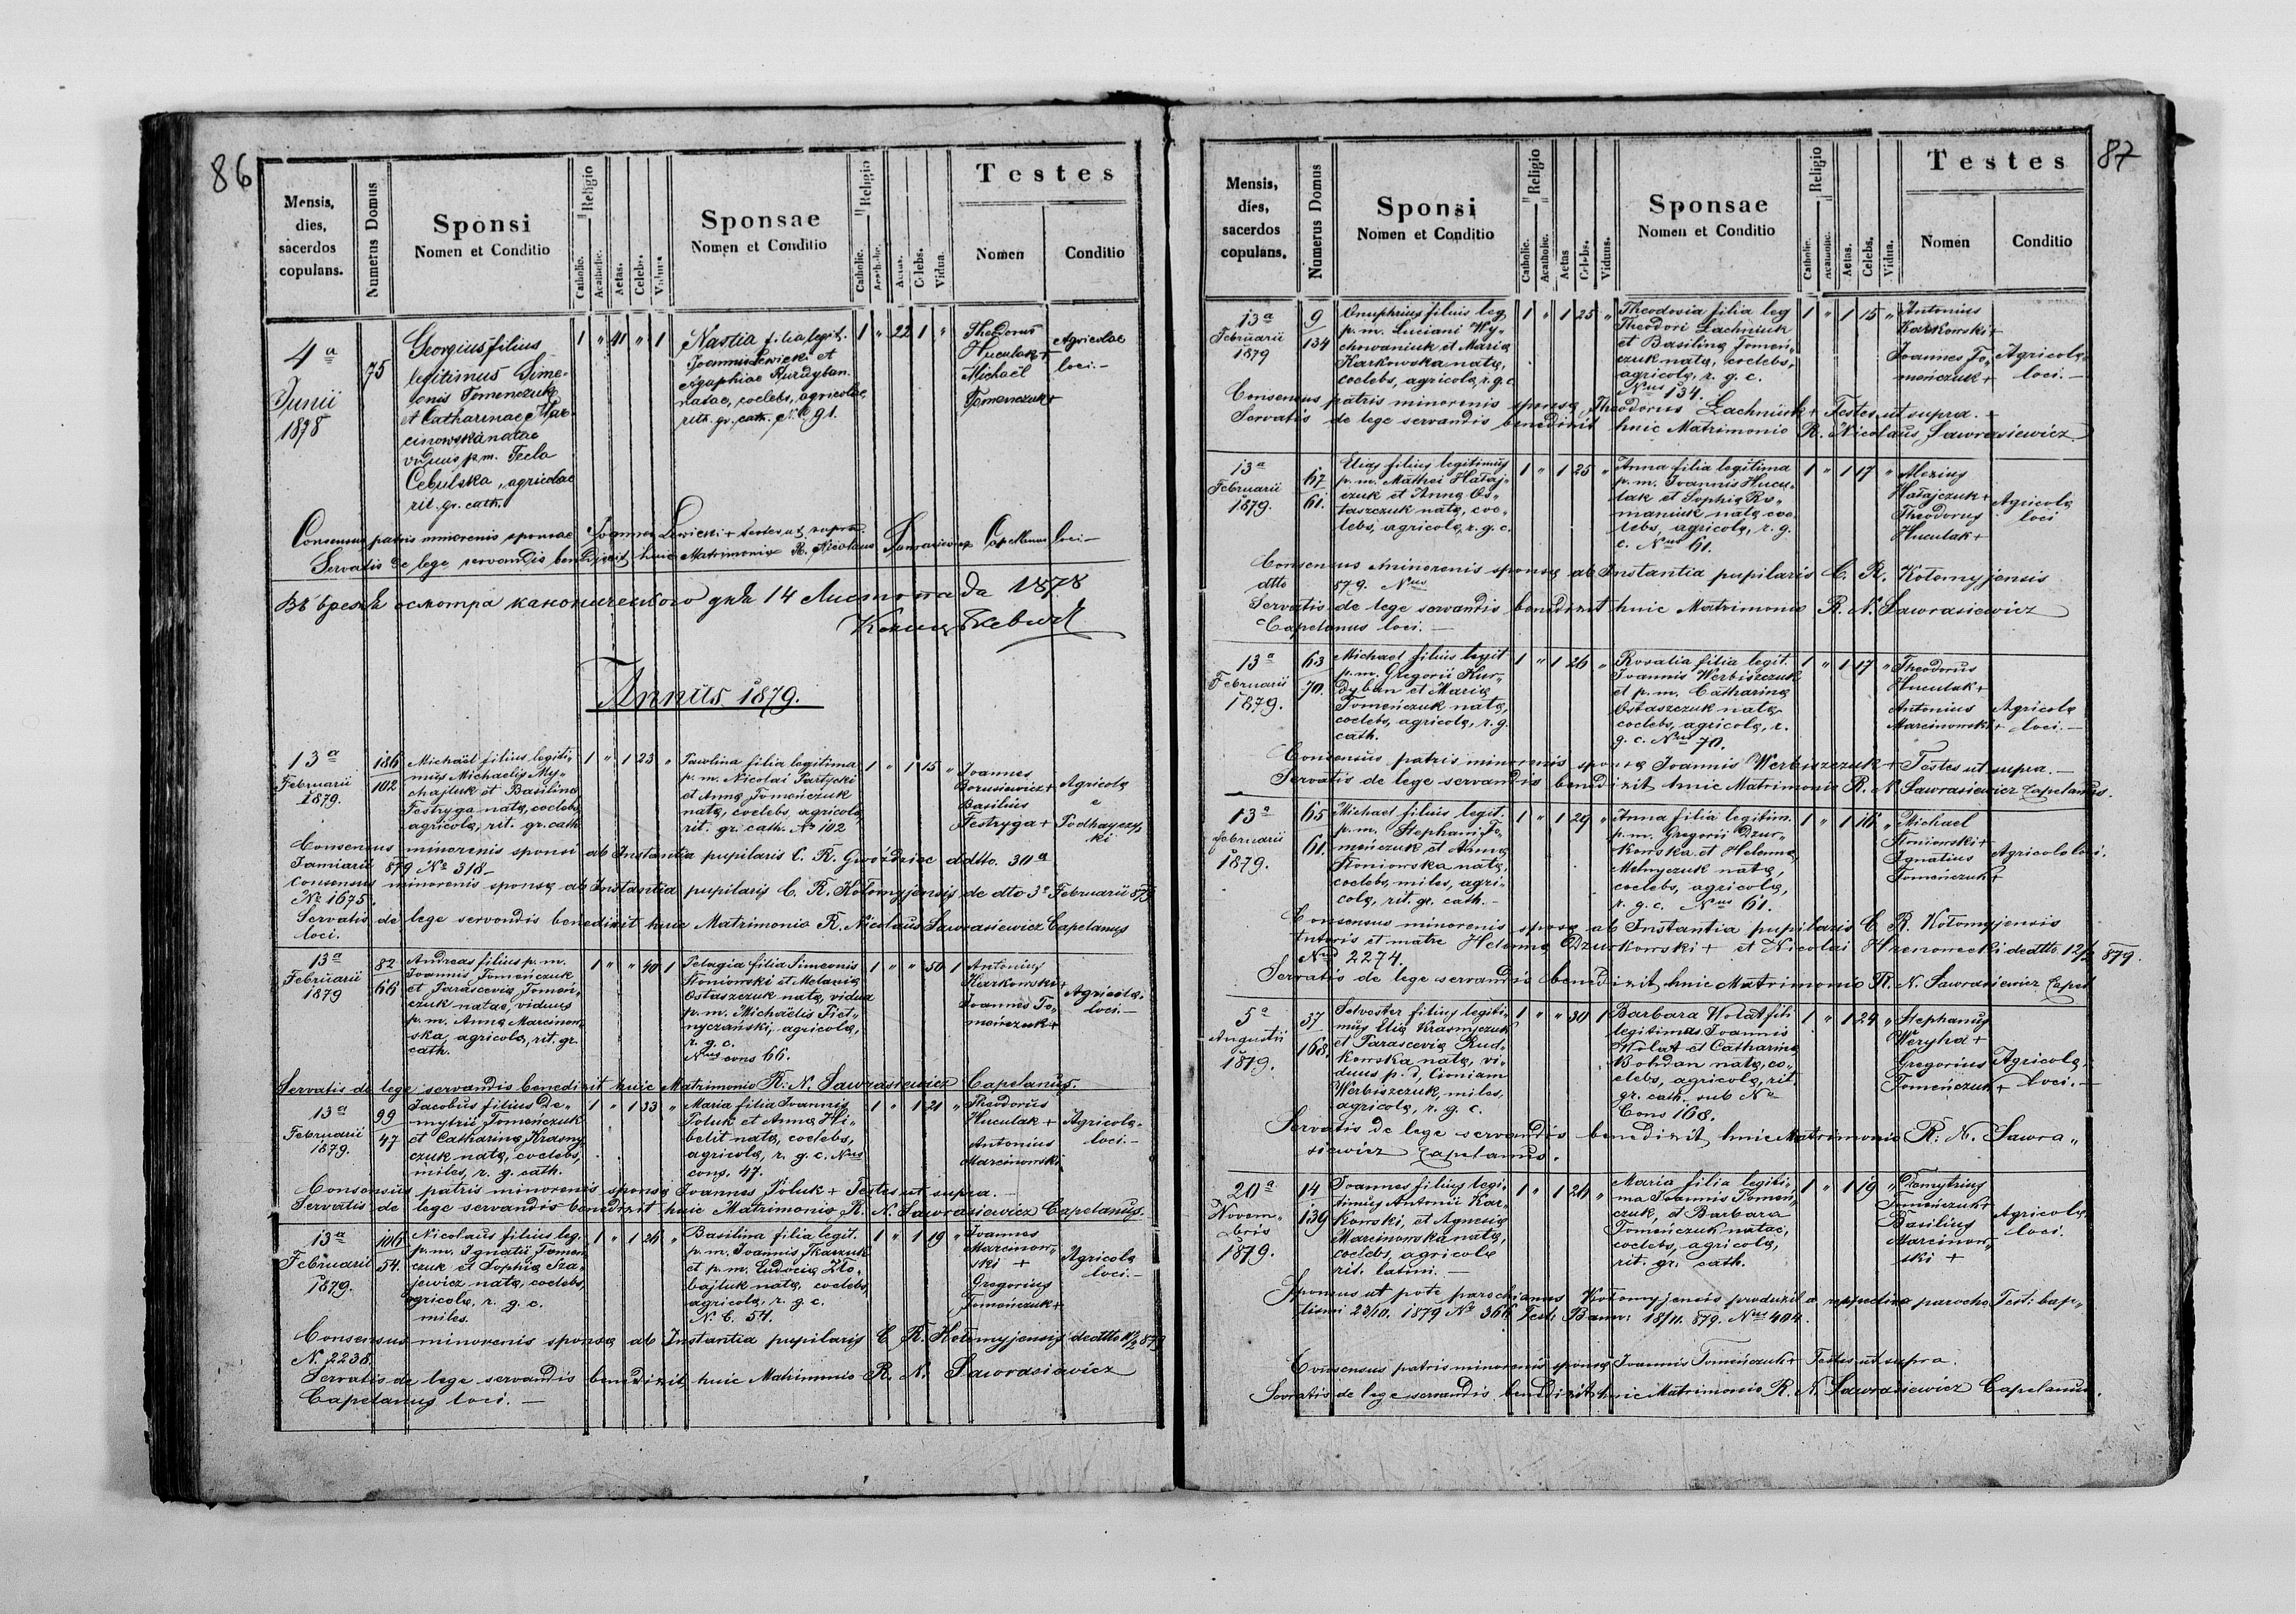 86
Mensis, dies, sacerdos copulans.
Numerus Domus
Sponsi
Nomen et Conditio
Religio
Catholic.
Acatholic.
Aetas.
Celebs.
Viduus
Sponsae
Nomen et Conditio
Religio
Catholic.
Acatholic.
Aetas.
Celebs.
Vidua.
Testes
Nomen
Conditio
4a Junii 1878
75
Georgius filius
legitimus Sime-
onis Tomenczuk
et Catharinae Mar-
cinowska natae
viduus p.m. Tecla
Cebulska, agricolae
rit. gr. cath.
1 " 41 " 1
Nastia filia legit.
Joannis Lewicki et
Agaphiae Kurdyban
natae, coelebs, agricolae
rit. gr. cath. No C 91.
1 " 22 1 "
Theodorus
Huculak +
Michaël
Tomenczuk +
Agricolae
loci. —
Consensus patris minorenis sponsae Joannes Lewicki + testes ut supra
Servatis de lege servandis benedixit huic Matrimonio R. Nicolaus Sawrasiewicz Capellanus loci —
Въ время осмотра канонического дня 14 Листопада 1878
Annus 1879.
13a Februarii 1879.
186
102
Michaël filius legiti-
mus Michaelis My-
chajluk et Basilina
Testryga nata, coelebs,
agricola, rit. gr. cath
1 " 1 23 "
Paulina filia legitima
p.m. Nicolai Partycki
et Anna Tomenczuk
nata, coelebs, agricola,
rit. gr. cath. No 102
1 " 1 15 "
Joannes
Borusiewicz +
Basilius
Testryga +
Agricola
e
Podhayczy
ki
Consensus minorenis sponsi ab Instantia pupilaris C. R. Gwóździec ddtto. 30a
Januarii 879 No 318 —
Consensus minorenis sponsa ab Instantia pupilaris C. R. Kołomyjensis de dto 3a Februarii 879
No 1675.
Servatis de lege servandis benedixit huic Matrimonio R. Nicolaus Sawrasiewicz Capelanus
loci.
13a Februarii 1879
82
66
Andreas filius p.m.
Joannis Tomenczuk
et Parascevia Tomeń-
czuk natae, viduus
p.m. Anna Marcinow-
ska, agricola, rit. gr
cath.
1 " " 40 1
Pelagia filia Simeonis
Stoniowski et Melania
Ostaszczuk nata, vidua
p.m. Michaëlis Piet-
nyczański, agricola,
r. g. c.
Nus cons 66.
1 " " 50 1
Antonius
Karkowski +
Joannes To-
meńczuk +
Agricola.
loci. —
Servatis de lege servandis benedixit huic Matrimonio R. N. Sawrasiewicz Capelanus.
13a Februarii 1879.
99
47
Jacobus filius De-
mytrii Tomeńczuk
et Catharina Krasny
czuk nata, coelebs,
miles, r. g. cath.
1 " 1 33 "
Maria filia Joannis
Poluk et Anna Hi-
belit nata, coelebs,
agricola, r. g. c. Nus
cons. 47.
1 " 1 21 "
Theodorus
Huculak +
Antonius
Marcinowski
Agricola.
loci. —
Consensus patris minorenis sponsa Joannes Poluk + Testes ut supra. —
Servatis de lege servandis benedixit huic Matrimonio R. N. Sawrasiewicz Capelanus.
13a Februarii 1879.
106
54.
Nicolaus filius leg.
p.m. Ignatii Tomen
czuk et Sophia Sza-
jewicz nata, coelebs,
agricola, r. g. c.
miles.
1 " 1 26 "
Basilina filia legit.
p.m. Joannis Tkaczuk
et p.m. Eudocia Zło-
bajluk nata, coelebs
agricola, r. g. c.
N. C. 54.
1 " 1 19 "
Joannes
Marcinow-
ski +
Gregorius
Tomeńczuk +
Agricola
loci. —
Consensus minorenis sponsa ab Instantia pupilaris C. R. Kołomyjensis de dtto 11/2 879
N. 2238.
Servatis de lege servandis benedixit huic Matrimonio R. N. Sawrasiewicz
Capelanus loci. —
87
Mensis, dies, sacerdos copulans.
Numerus Domus
Sponsi
Nomen et Conditio
Religio
Catholic.
Acatholic.
Aetas
Celebs.
Viduus.
Sponsae
Nomen et Conditio
Religio
Catholic.
Acatholic.
Aetas.
Celebs.
Vidua.
Testes
Nomen
Conditio
13a Februarii 1879
9
134
Onuphrius filius leg
p.m. Luciani Wy-
chowaniuk et Maria
Karkowska nata,
coelebs, agricola, r. g. c
1 " 1 25 "
Theodosia filia leg
Theodori Lachniuk
et Basilina Tomeń-
czuk nata, coelebs,
agricola, r. g. c.
Nus 134.
1 " 1 15 "
Antonius
Karkowski +
Joannes To-
meńczuk +
Agricola
loci. —
Consensus patris minorenis sponsa Theodorus Lachniuk + Testes ut supra. +
Servatis de lege servandis benedixit huic Matrimonio R. Nicolaus Sawrasiewicz
13a Februarii 1879.
67
61.
Elias filius legitimus
p.m. Mathei Hałaj-
czuk et Anna Os-
taszczuk nata, coe-
lebs, agricola, r. g. c.
1 " 1 25 "
Anna filia legitima
p.m. Joannis Hucu-
lak et Sophia Ro-
maniuk nata coe-
lebs, agricola, r. g.
c. Nus 61.
1 " 1 17 "
Alexius
Hałajczuk +
Theodorus
Huculak +
Agricola
loci
Consensus minorenis sponsa ab Instantia pupilaris C. R. Kołomyjensis
dtto 879. Nus
Servatis de lege servandis benedixit huic Matrimonio R. N. Sawrasiewicz
Capelanus loci. —
13a Februarii 1879.
63
70.
Michael filius legit
p.m. Gregorii Kur-
dyban et Maria
Tomeńczuk nata,
coelebs, agricola, r. g.
cath.
1 " 1 26 "
Rosalia filia legit.
Joannis Werbiszczuk
et p.m. Catharina
Ostaszczuk nata
coelebs, agricola, r.
g. c. Nus 70.
1 " 1 17 "
Theodorus
Huculak +
Antonius
Marcinowski +
Agricola
loci. —
Consensus patris minorenis sponsa Joannis Werbiszczuk + Testes ut supra. —
Servatis de lege servandis benedixit huic Matrimonio R. N. Sawrasiewicz Capelanus.
13a februarii 1879.
65
61.
Michael filius legit.
p.m. Stephani To-
meńczuk et Anna
Stoniowska nata,
coelebs, miles, agri-
cola, rit. gr. cath. —
1 " 1 29 "
Anna filia legitim.
p.m. Gregorii Dzur-
kowska et Helenna
Melnyczuk nata,
coelebs, agricola,
r. g. c. Nus 61.
1 " 1 18 "
Michael
Stoniowski +
Ignatius
Tomeńczuk +
Agricola loci.
Consensus minorenis sponsa ab Instantia pupilaris C. R. Kołomyjensis
tutoris et matre Helenna Dzurkowski + et Nicolai Hrenowecki de dtto. 12/2 879.
Nus 2274.
Servatis de lege servandis benedixit huic Matrimonio R. N. Sawrasiewicz Capel
5a Augustii 1879.
37
168.
Selvester filius legiti-
mus Elia Krasnyczuk
et Parascevia Rud-
kowska nata, vi-
duus p. d,
Werbiszczuk, miles,
agricola, r. g. c.
1 " " 30 1
Barbara Wolat fili
legitimas Joannis
Wolat et Catharina
Bohdan nata, co-
elebs, agricola, rit.
gr. cath. sub No
Cons 168.
1 " 1 24 "
Stephanus
Weryha +
Gregorius
Tomeńczuk +
Agricola,
loci. —
Servatis de lege servandis benedixit huic Matrimonio R. N. Sawra-
siewicz Capelanus.
20a Novem- bris 1879.
14
139
Joannes filius legi-
timus Antonii Kar-
kowski, et Agnesia
Marcinowska nata,
coelebs, agricola
rit. latini. —
1 " 1 24 "
Maria filia legiti-
ma Joannis Tomeń-
czuk, et Barbara
Tomeńczuk natae,
coelebs, agricola,
rit. gr. cath.
1 " 1 19 "
Demytrius
Tomeńczuk +
Basilius
Marcinow-
ski +
Agricola
loci.
Sponsus ut pote parochianus Kołomyjensis produxit a respectivo parocho Test: bap-
tismi 23/10. 1879 No 366 Test: Bann: 18/11. 879. Nus 404.
Consensus patris minorenis sponsa Joannis Tomeńczuk + Testes ut supra.
Servatis de lege servandis benedixit huic Matrimonio R. N. Sawrasiewicz Capelanus.